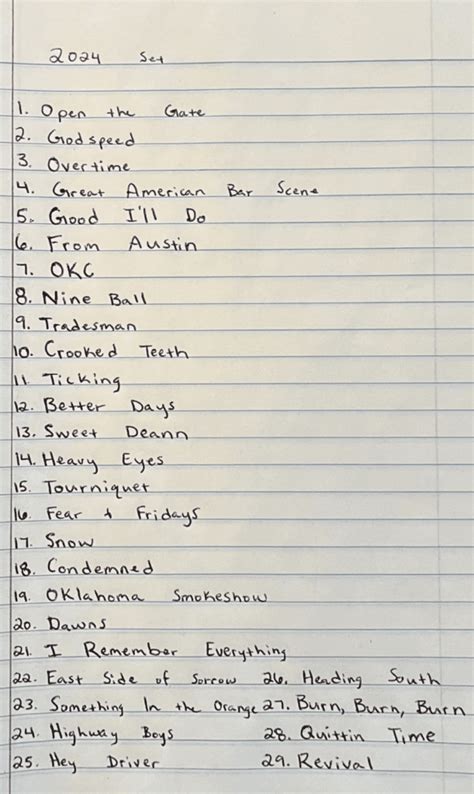 2024 Set
1. Open the Gate
2. Godspeed
3. Overtime
4. Great American Bar Scene
5. Good I'll Do
6. From Austin
7. OKC
8. Nine Ball
9. Tradesman
10. Crooked Teeth
11. Ticking
12. Better Days
13. Sweet Deann
14. Heavy Eyes
15. Tourniquet
16. Fear + Fridays
17. Snow
18. Condemned
19. Oklahoma Smokeshow
20. Dawns
21. I Remember Everything
22. East Side of Sorrow 26. Heading South
23. Something In the Orange 27. Burn, Burn, Burn
24. Highway Boys 28. Quittin Time
25. Hey Driver 29. Revival